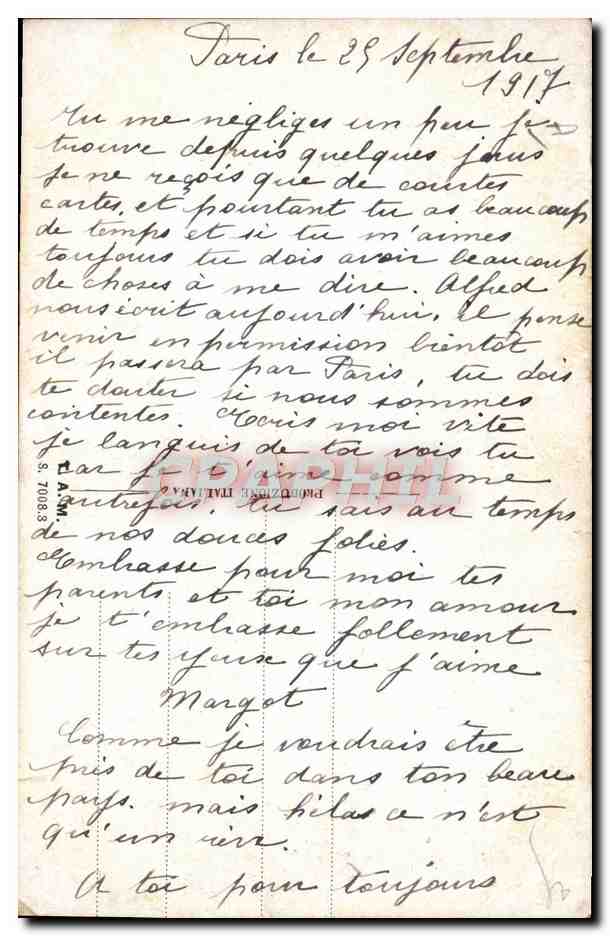 Paris le 25 Septembre
1917
Tu me négliges un peu je
trouve depuis quelques jours
je ne reçois que de courtes
cartes, et pourtant tu as beaucoup
de temps et si tu m'aimes
toujours tu dois avoir beaucoup
de choses à me dire. Alfred
nous écrit aujourd'hui, il pense
venir en permission bientôt
il passera par Paris, tu dois
te douter si nous sommes
contentes. Ecris moi vite
je languis de toi vois tu
car je t'aime comme
autrefois, tu sais au temps
de nos douces folies.
Embrasse pour moi tes
parents et toi mon amour
je t'embrasse follement
sur tes yeux que j'aime
Margot
Comme je voudrais être
près de toi dans ton beau
pays. mais hélas ce n'est
qu'un rêve.
A toi pour toujours
PRODUZIONE ITALIANA
S. 7008.8
CPAPHIL